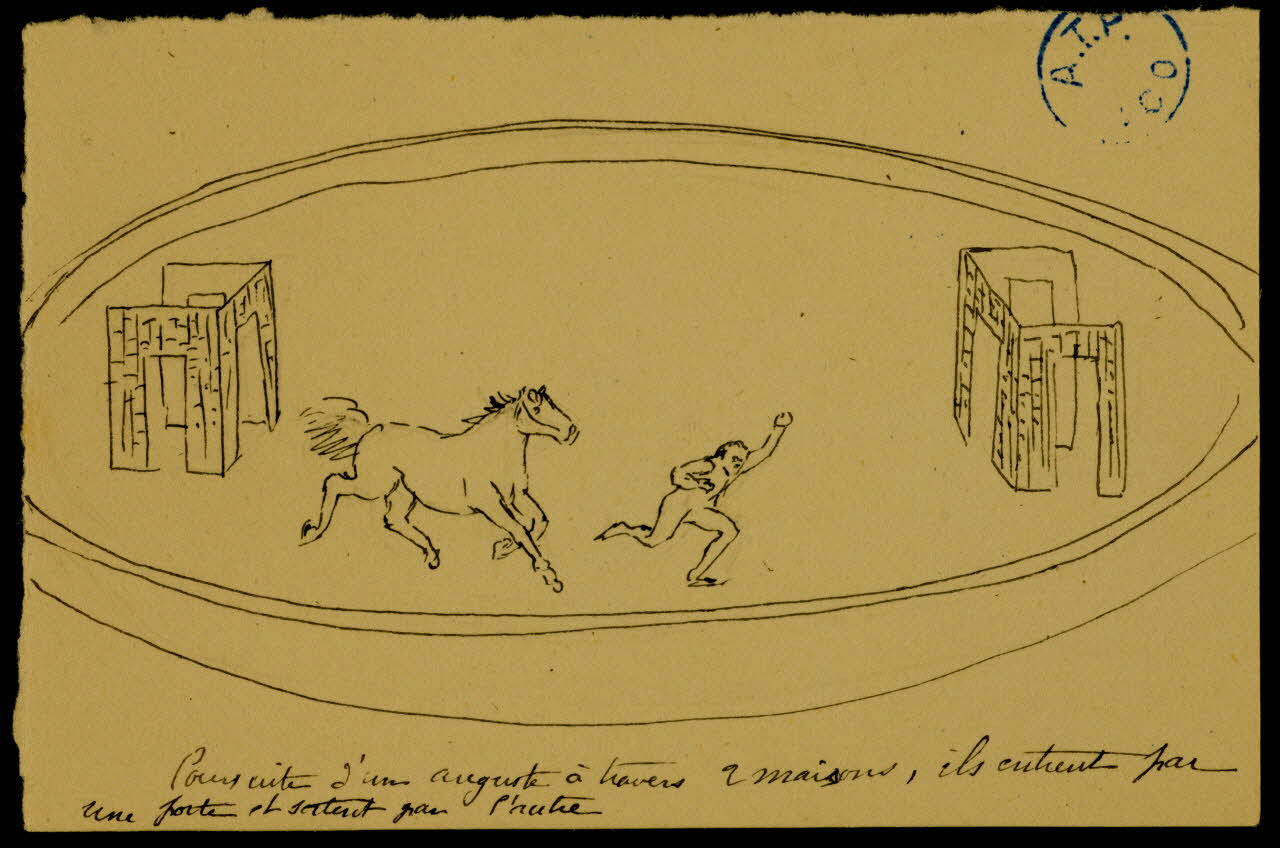 A.T.P.
CO
Poursuite d'un auguste à travers 2 maisons, ils entrent par
une porte et sortent par l'autre